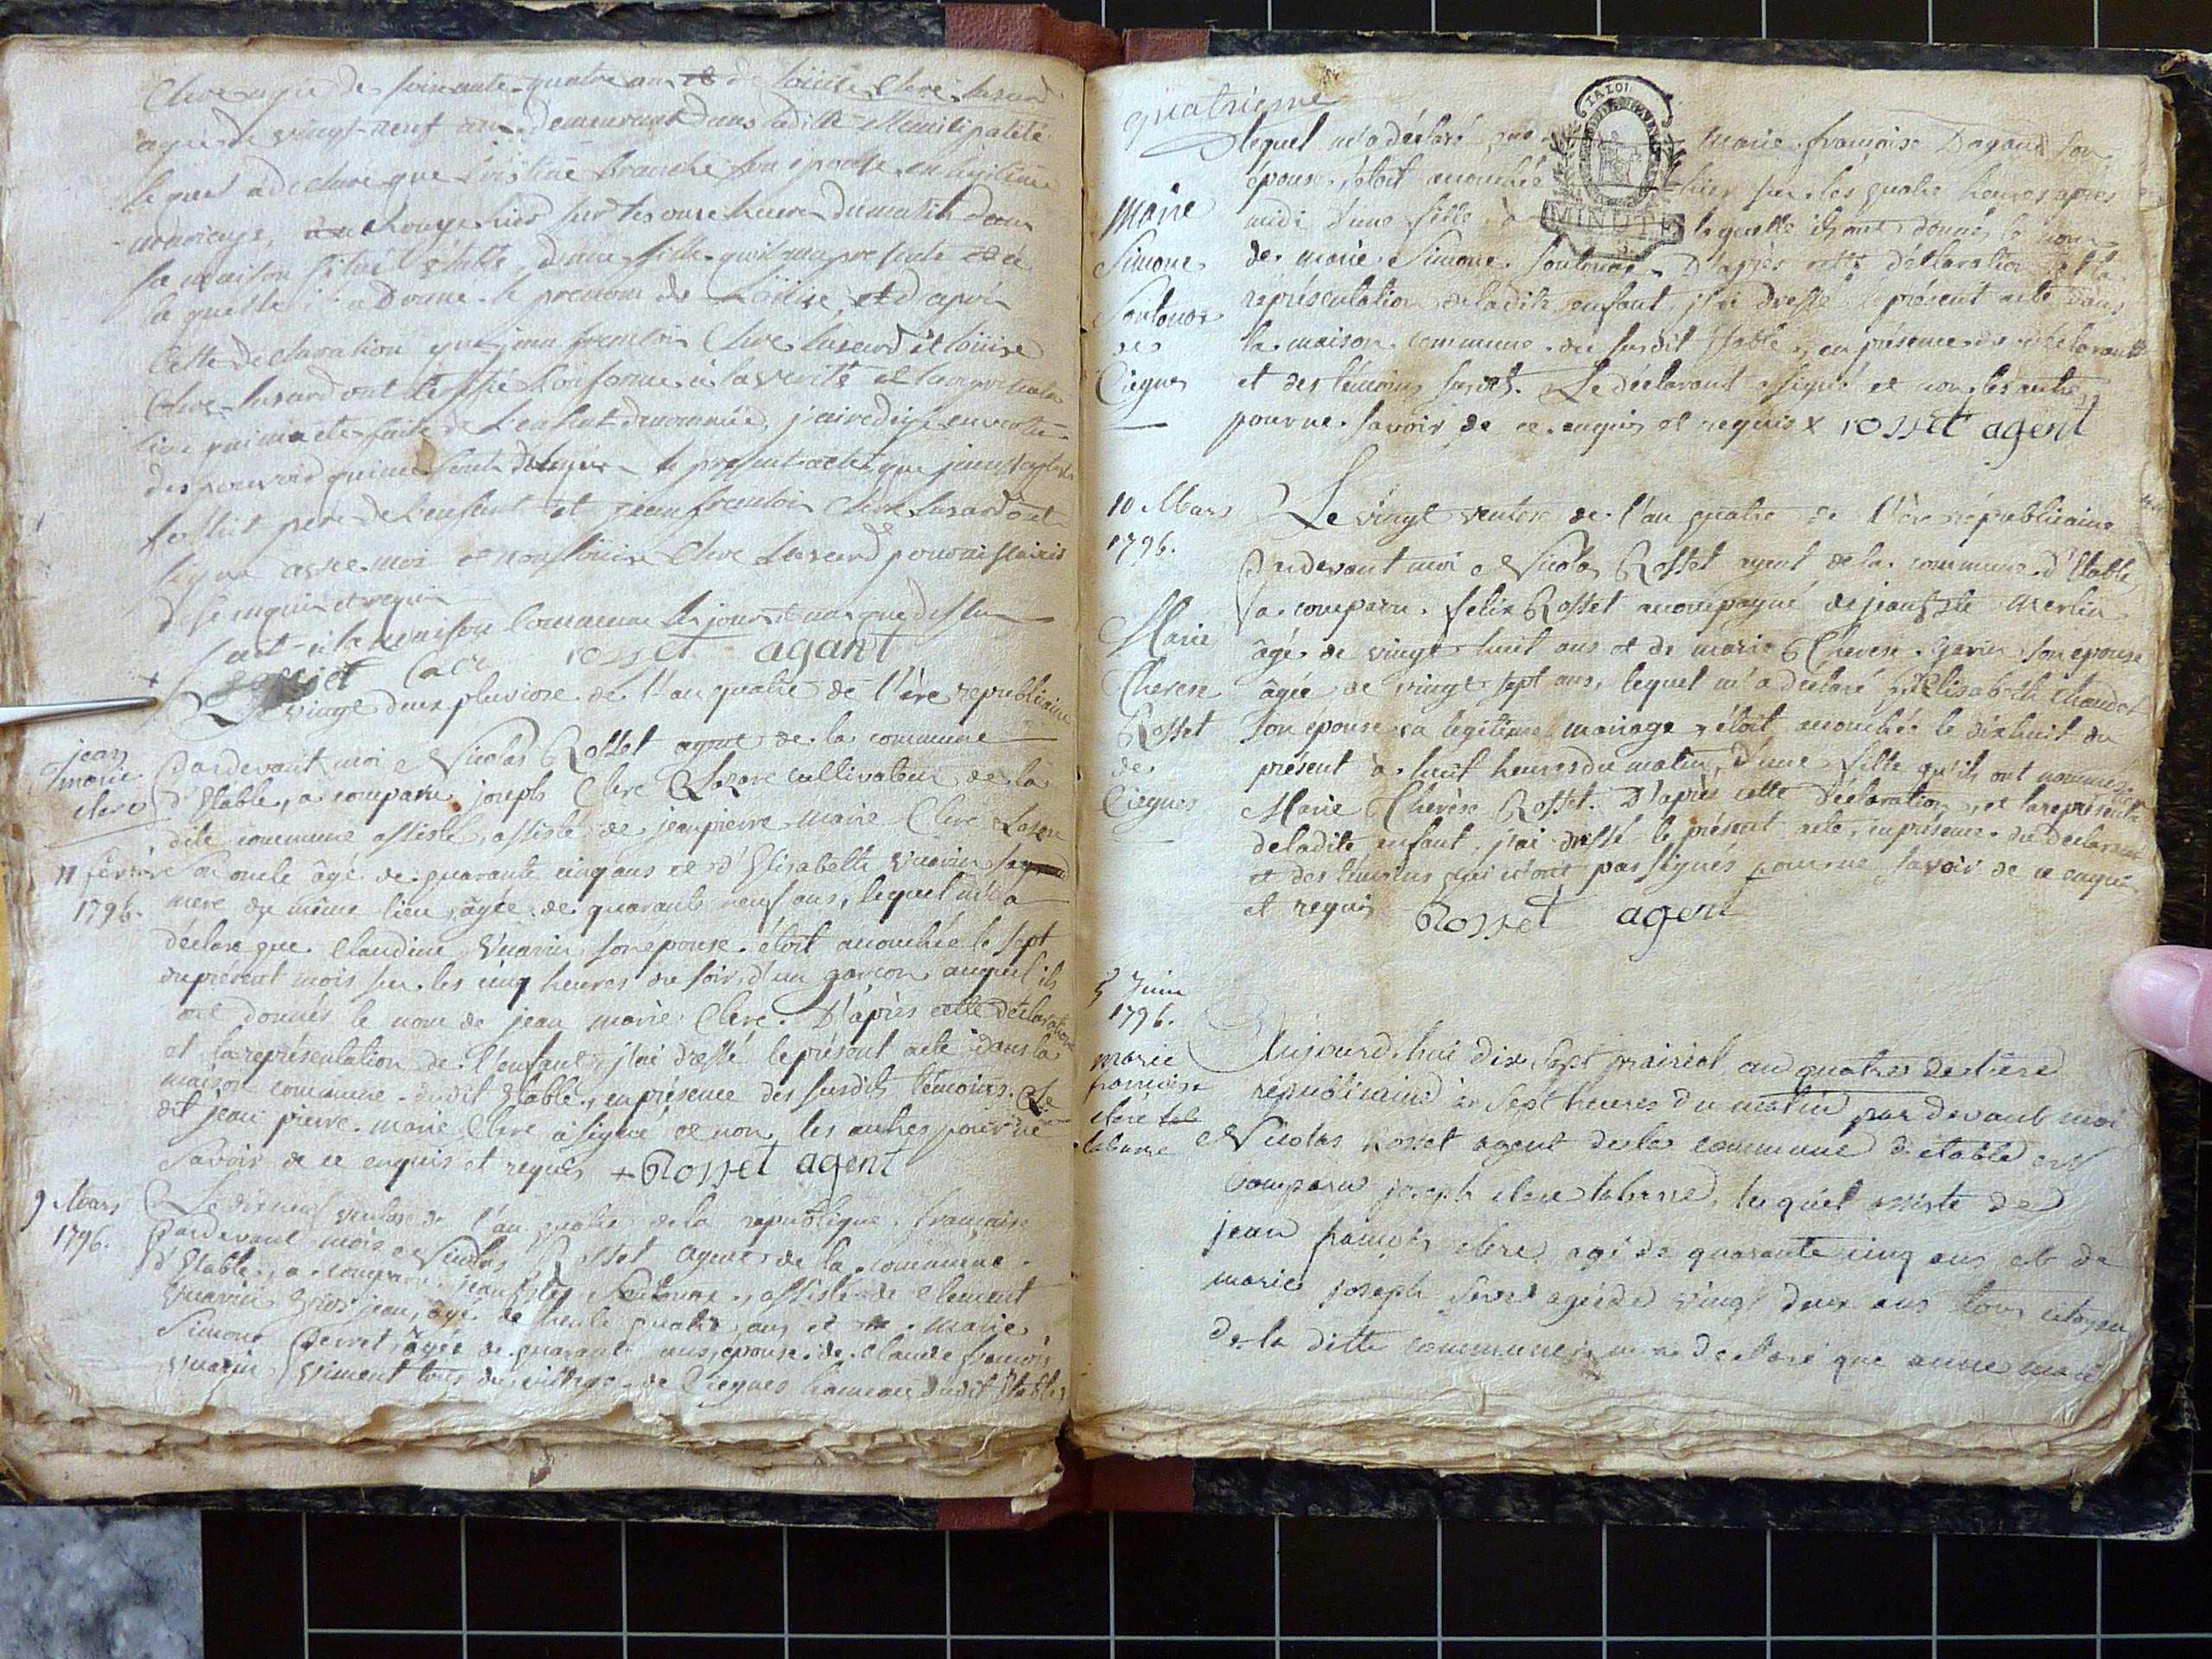 Clerc agée de soixante quatre ans et de loüise Clerc lusard
agée de vingt-neuf ans demeurant dans laditte Municipalité
lequel a declaré que Cristine branche son épouse en legitime
mariage, accouchée hier sur les onze heures du matin dans
sa maison située Etable, d'une fille quil ma presenté et a
laquelle il a donné le prenom de Loüise, et d'après
Cette declaration que jean francois Clerc lusard et loüise
Clerc lusard ont certifié Conforme à la verité et la representa
tion qui m'a eté faite de l'enfant denommée, j'ai redigé en vertu
des pouvoirs qui me sont delegués le present acte que
pere de l'enfant et jean francois Clerc lusard ont
signé avec moi et non loüise Clerc lusard pour ne savoir
de ce enquis et requis
fait à la maison Commune les jours et an que dessus
rosset agant
Le vingt deux pluviose de l'an quatre de l'ère republicaine
Pardevant moi Nicolas Rosset agent de la commune
d'Etable, a comparu joseph Clerc cultivateur de la
dite commune assisté, assisté de jean pierre marie Clerc
son oncle âgé de quarante cinq ans et d'Elisabeth Vuarin sa
mere du même lieu, âgée de quarante neuf ans, lequel m'a
déclaré que Claudine Vuarin son épouse étoit accouchée le sept
du présent mois sur les cinq heures du soir, d'un garçon auquel ils
ont donnés le nom de jean marie Clerc. D'après cette déclaration
et la représentation de l'enfant, j'ai dressé le présent acte dans la
maison commune dudit Etable, en présence des susdits témoins. Le
dit jean pierre marie Clerc a signé et non les autres pour ne
savoir de ce enquis et requis + Rosset agent
jean
marie
clerc
11 fevrier
1796.
9 Mars
1796.
Le dixneuf ventose de l'an quatre de la republique française
Pardevant moi Nicolas Rosset agent de la commune
d'Etable, a comparu jean Bte Soutonax, assisté de Clement
Vuarin Gros jean, âgé de trente quatre ans et de marie
Simone Perret, âgée de quarante ans, épouse de Claude françois
Vuarin tous du village de Ciegnes hameau dudit Etable
quatrieme
lequel m'a déclaré que Marie françoise Dagand son
LA LOI
MINUTE
épouse, étoit accouchée hier sur les quatre heures après
midi d'une fille à laquelle ils ont donnés le nom
de marie Simone Soutonax. D'après cette déclaration et la
représentation de ladite enfant, j'ai dressé le présent acte dans
la maison commune du susdit Etable, en présence du déclarant
et des témoins susdits. Le déclarant a signé et non les autres
pour ne savoir de ce enquis et requis x rosset agent
Marie
Simone
Soutonax
de
Ciegnes
10 Mars
1796.
Le vingt ventose de l'an quatre de l'ère républicaine
Pardevant moi Nicolas Rosset agent de la commune d'Etable,
a comparu felix Rosset accompagné de jean Bte Merlin
âgé de vingt huit ans et de marie Therese Garin son epouse
âgée de vingt sept ans, lequel m'a déclaré qu'Elisabeth Chaudet
son épouse en legitime mariage, étoit accouchée le dixhuit du
présent à huit heures du matin, d'une fille qu'ils ont nommée
Marie Thérèse Rosset. D'après cette déclaration, et la représentation
de ladite enfant, j'ai dressé le présent acte, en présence du déclarant
et des témoins qui n'ont pas signés pour ne savoir de ce enquis
et requis Rosset agent
Marie
Therese
Rosset
de
Ciegnes
5 Juin
1796.
marie
françoise
clerc
labarre
Aujourd'hui dix sept prairial an quatre de l'ère
républicaine à sept heures du matin par devant moi
Nicolas Rosset agent de la commune d'etable est
comparu joseph clerc labarre, lequel assisté de
jean françois clerc agé de quarante cinq ans et de
marie joseph agée de vingt deux ans tous citoyens
de la ditte commune, m'a declaré que anne marie